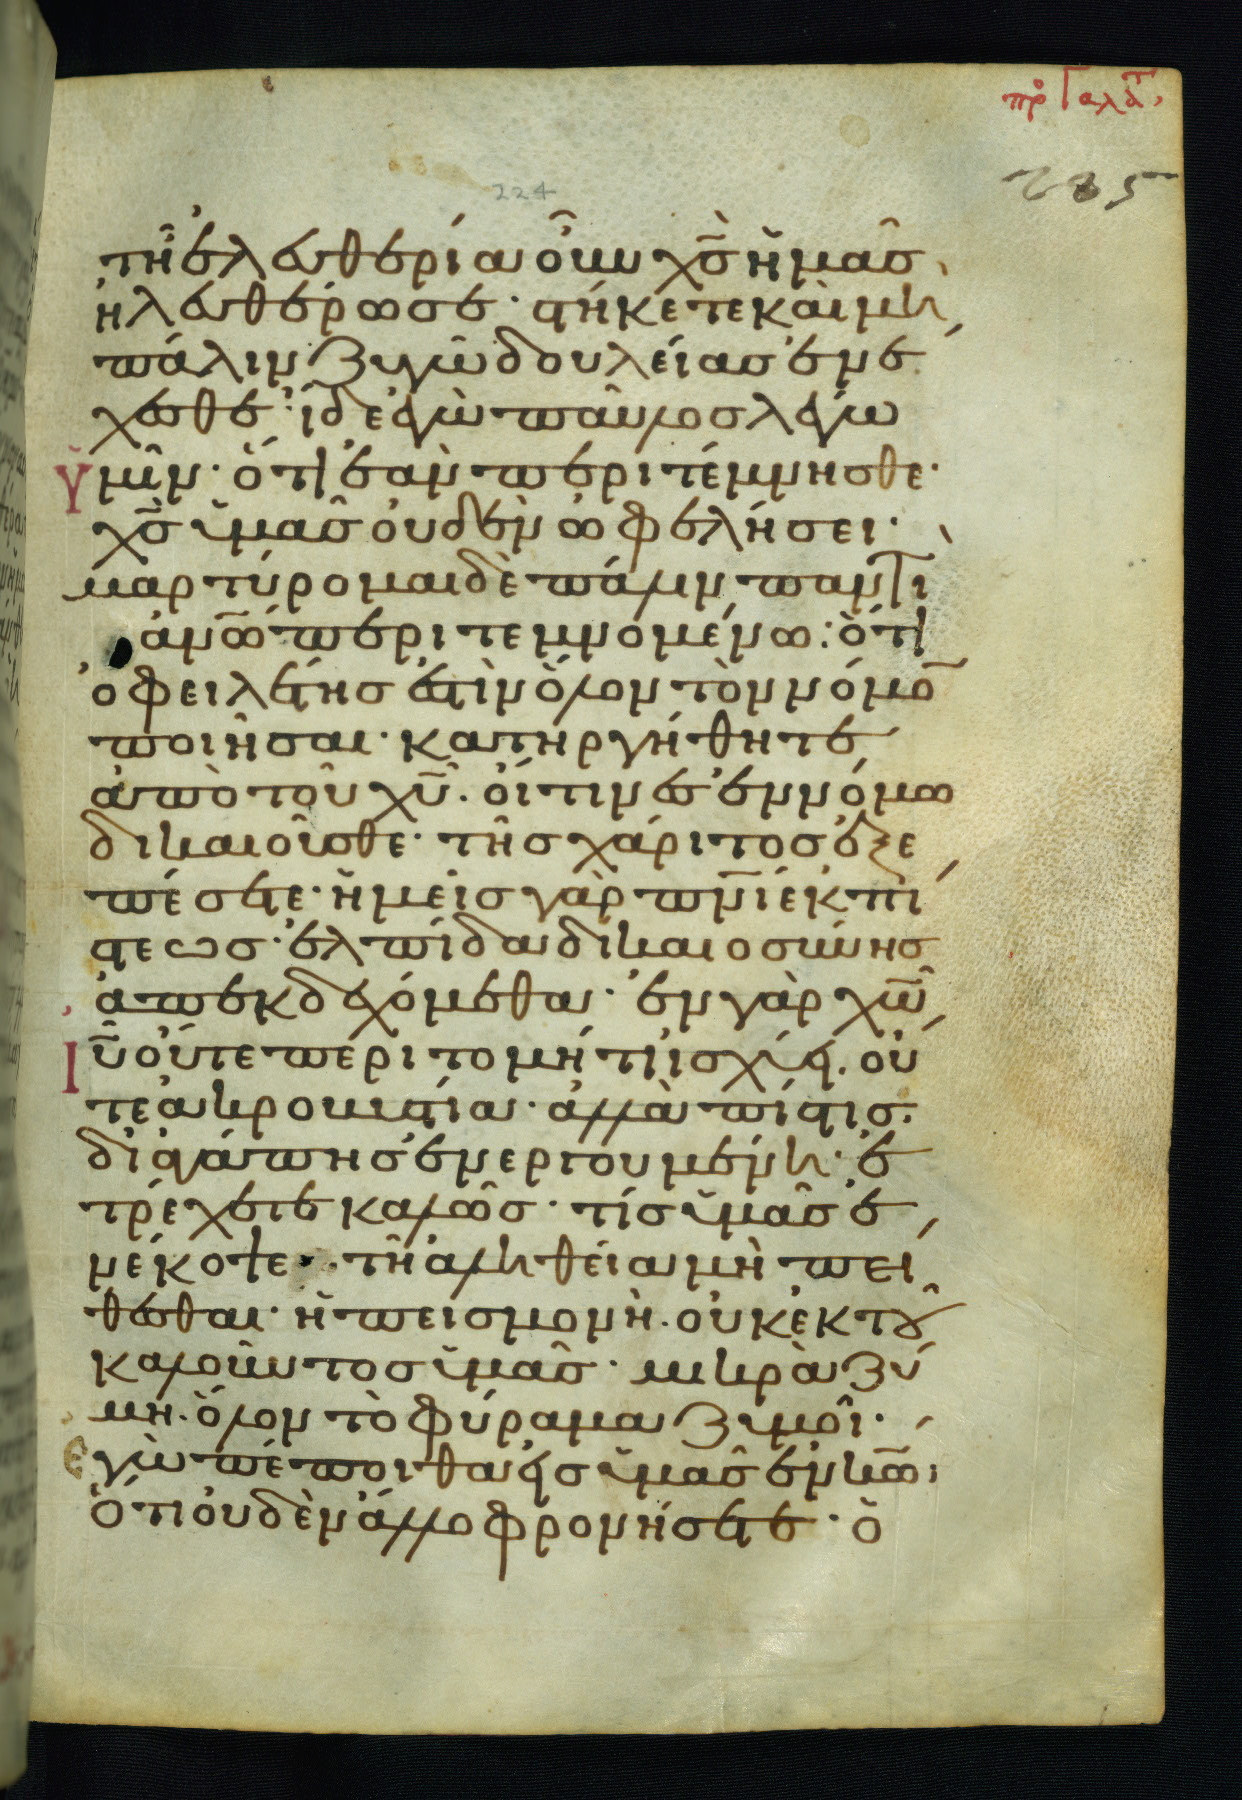 πρ Γαλατ
235
224
τῆ ἐλευθερία οὖν χς ἡμᾶς
ἠλευθέρωσε· στήκετε καὶ μὴ
πάλιν ζυγῶ δουλείας ἐνέ
χεσθε· ἴδε ἐγὼ παῦλος λέγω
ὑμῖν· ὅτι ἐὰν περιτέμνησθε·
χς ὑμᾶς οὐδὲν ὠφελήσει·
μαρτύρομαι δὲ πάλιν παντὶ
ἀνω περιτεμνομένω: ὅτι
ὀφειλέτης ἐστὶν ὅλον τὸν νόμο
ποιῆσαι· κατηργήθητε
ἀπὸ τοῦ χυ· οἵτινες ἐν νόμω
δικαιοῦσθε· τῆς χάριτος ἐξε
πέσατε· ἡμεῖς γὰρ πνι ἐκ πί
στεως· ἐλπίδα δικαιοσύνης
ἀπεκδεχόμεθα· ἐν γὰρ χω
Ιυ οὔτε περιτομή τι ἰσχύει· οὔ
τε ἀκροβυστία· ἀλλὰ πίστις
δι ἀγάπης ἐνεργουμένη· ἐ
τρέχετε καλῶς· τίς ὑμᾶς ἐ
νέκοψε· τῆ ἀληθεία μὴ πεί
θεσθαι· ἡ πεισμονὴ· οὐκ ἐκ τοῦ
καλοῦντος ὑμᾶς· μικρὰ ζύ
μη· ὅλον τὸ φύραμα ζυμοῖ·
Εγὼ πέποιθα εἰς ὑμᾶς ἐν κω:
ὅτι οὐδὲν ἄλλο φρονήσετε· ὁ